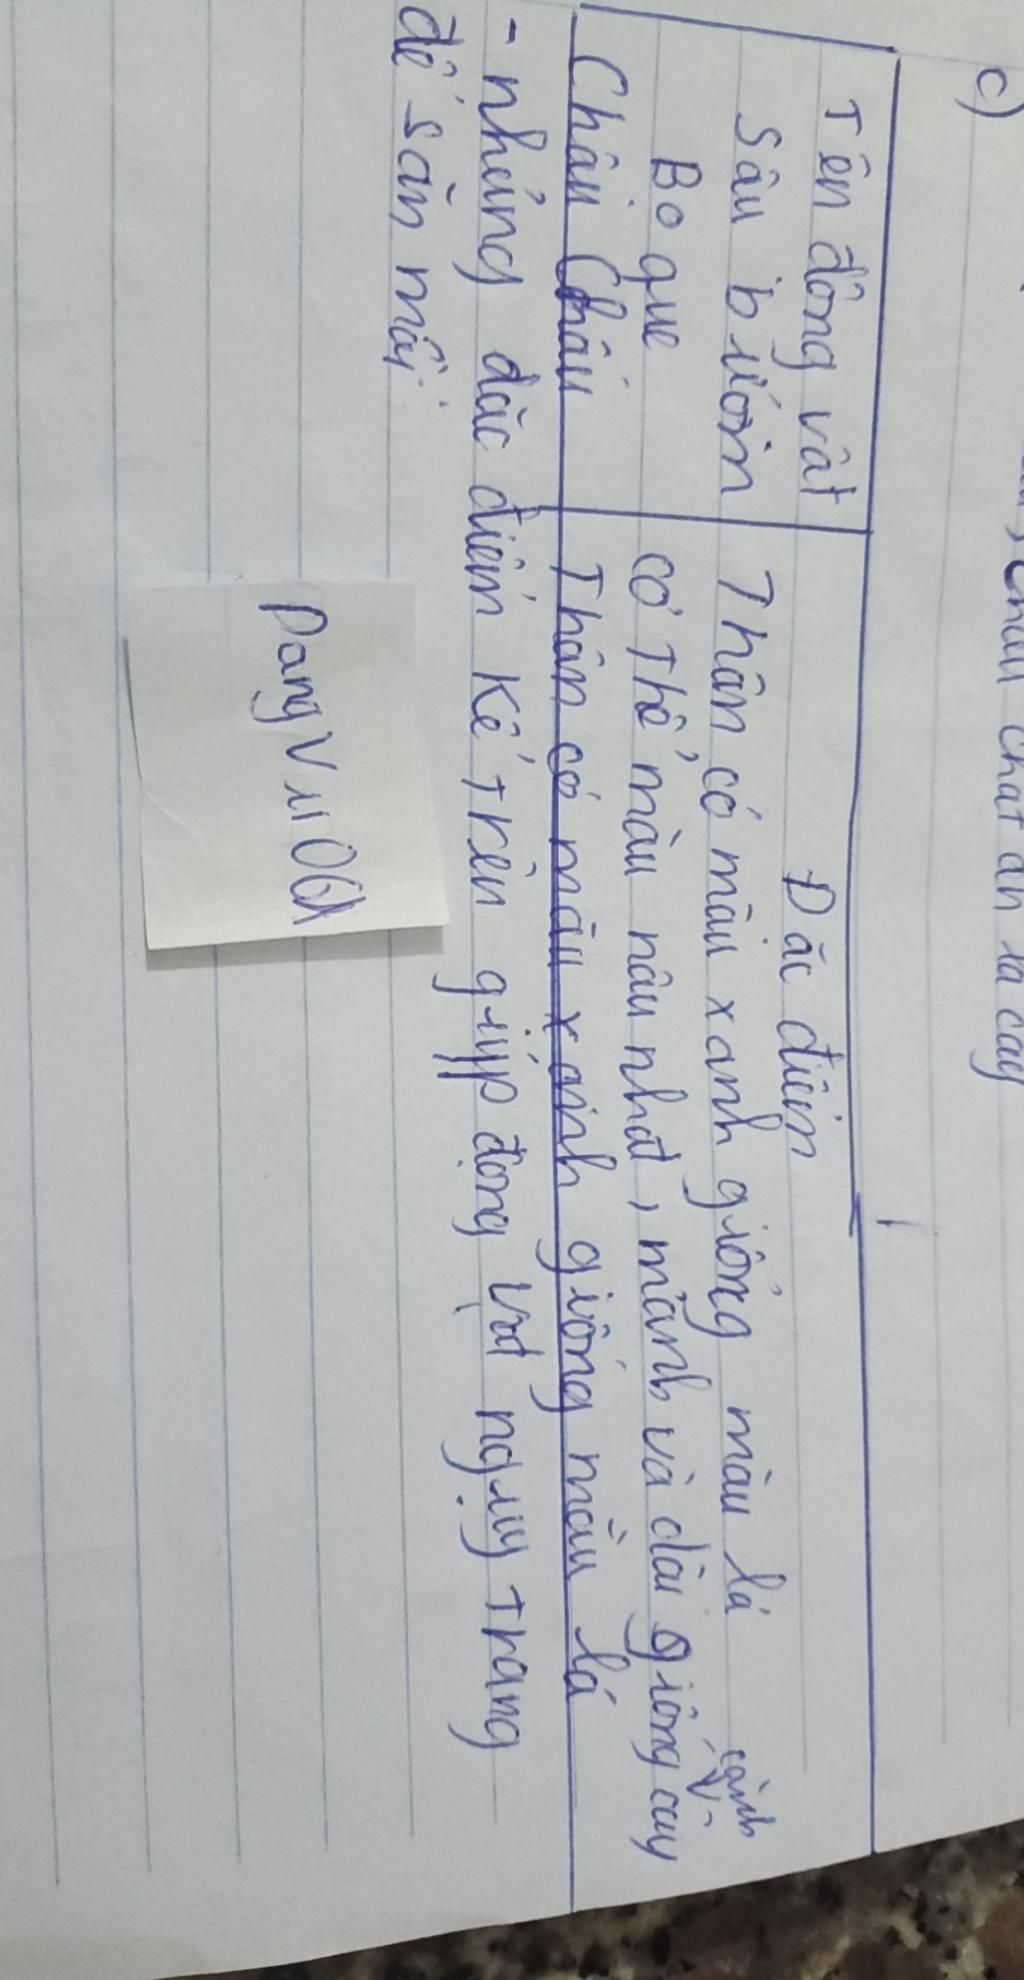 c)
chất ăn lá cây
Tên động vật Đặc điểm
Sâu bướm Thân có màu xanh giống màu lá
Bọ que có thể màu nâu nhạt, mảnh và dài giống cành cây
Châu Chấu Thân có màu xanh giống màu lá
- những đặc điểm kể trên giúp động vật ngụy trang
để săn mồi.
DangVu06